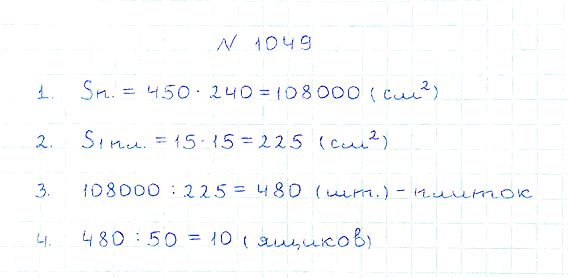 N 1049
1. Sп. = 450 · 240 = 108000 (см²)
2. S1 пл. = 15 · 15 = 225 (см²)
3. 108000 : 225 = 480 (шт.) - плиток
4. 480 : 50 = 10 (ящиков)